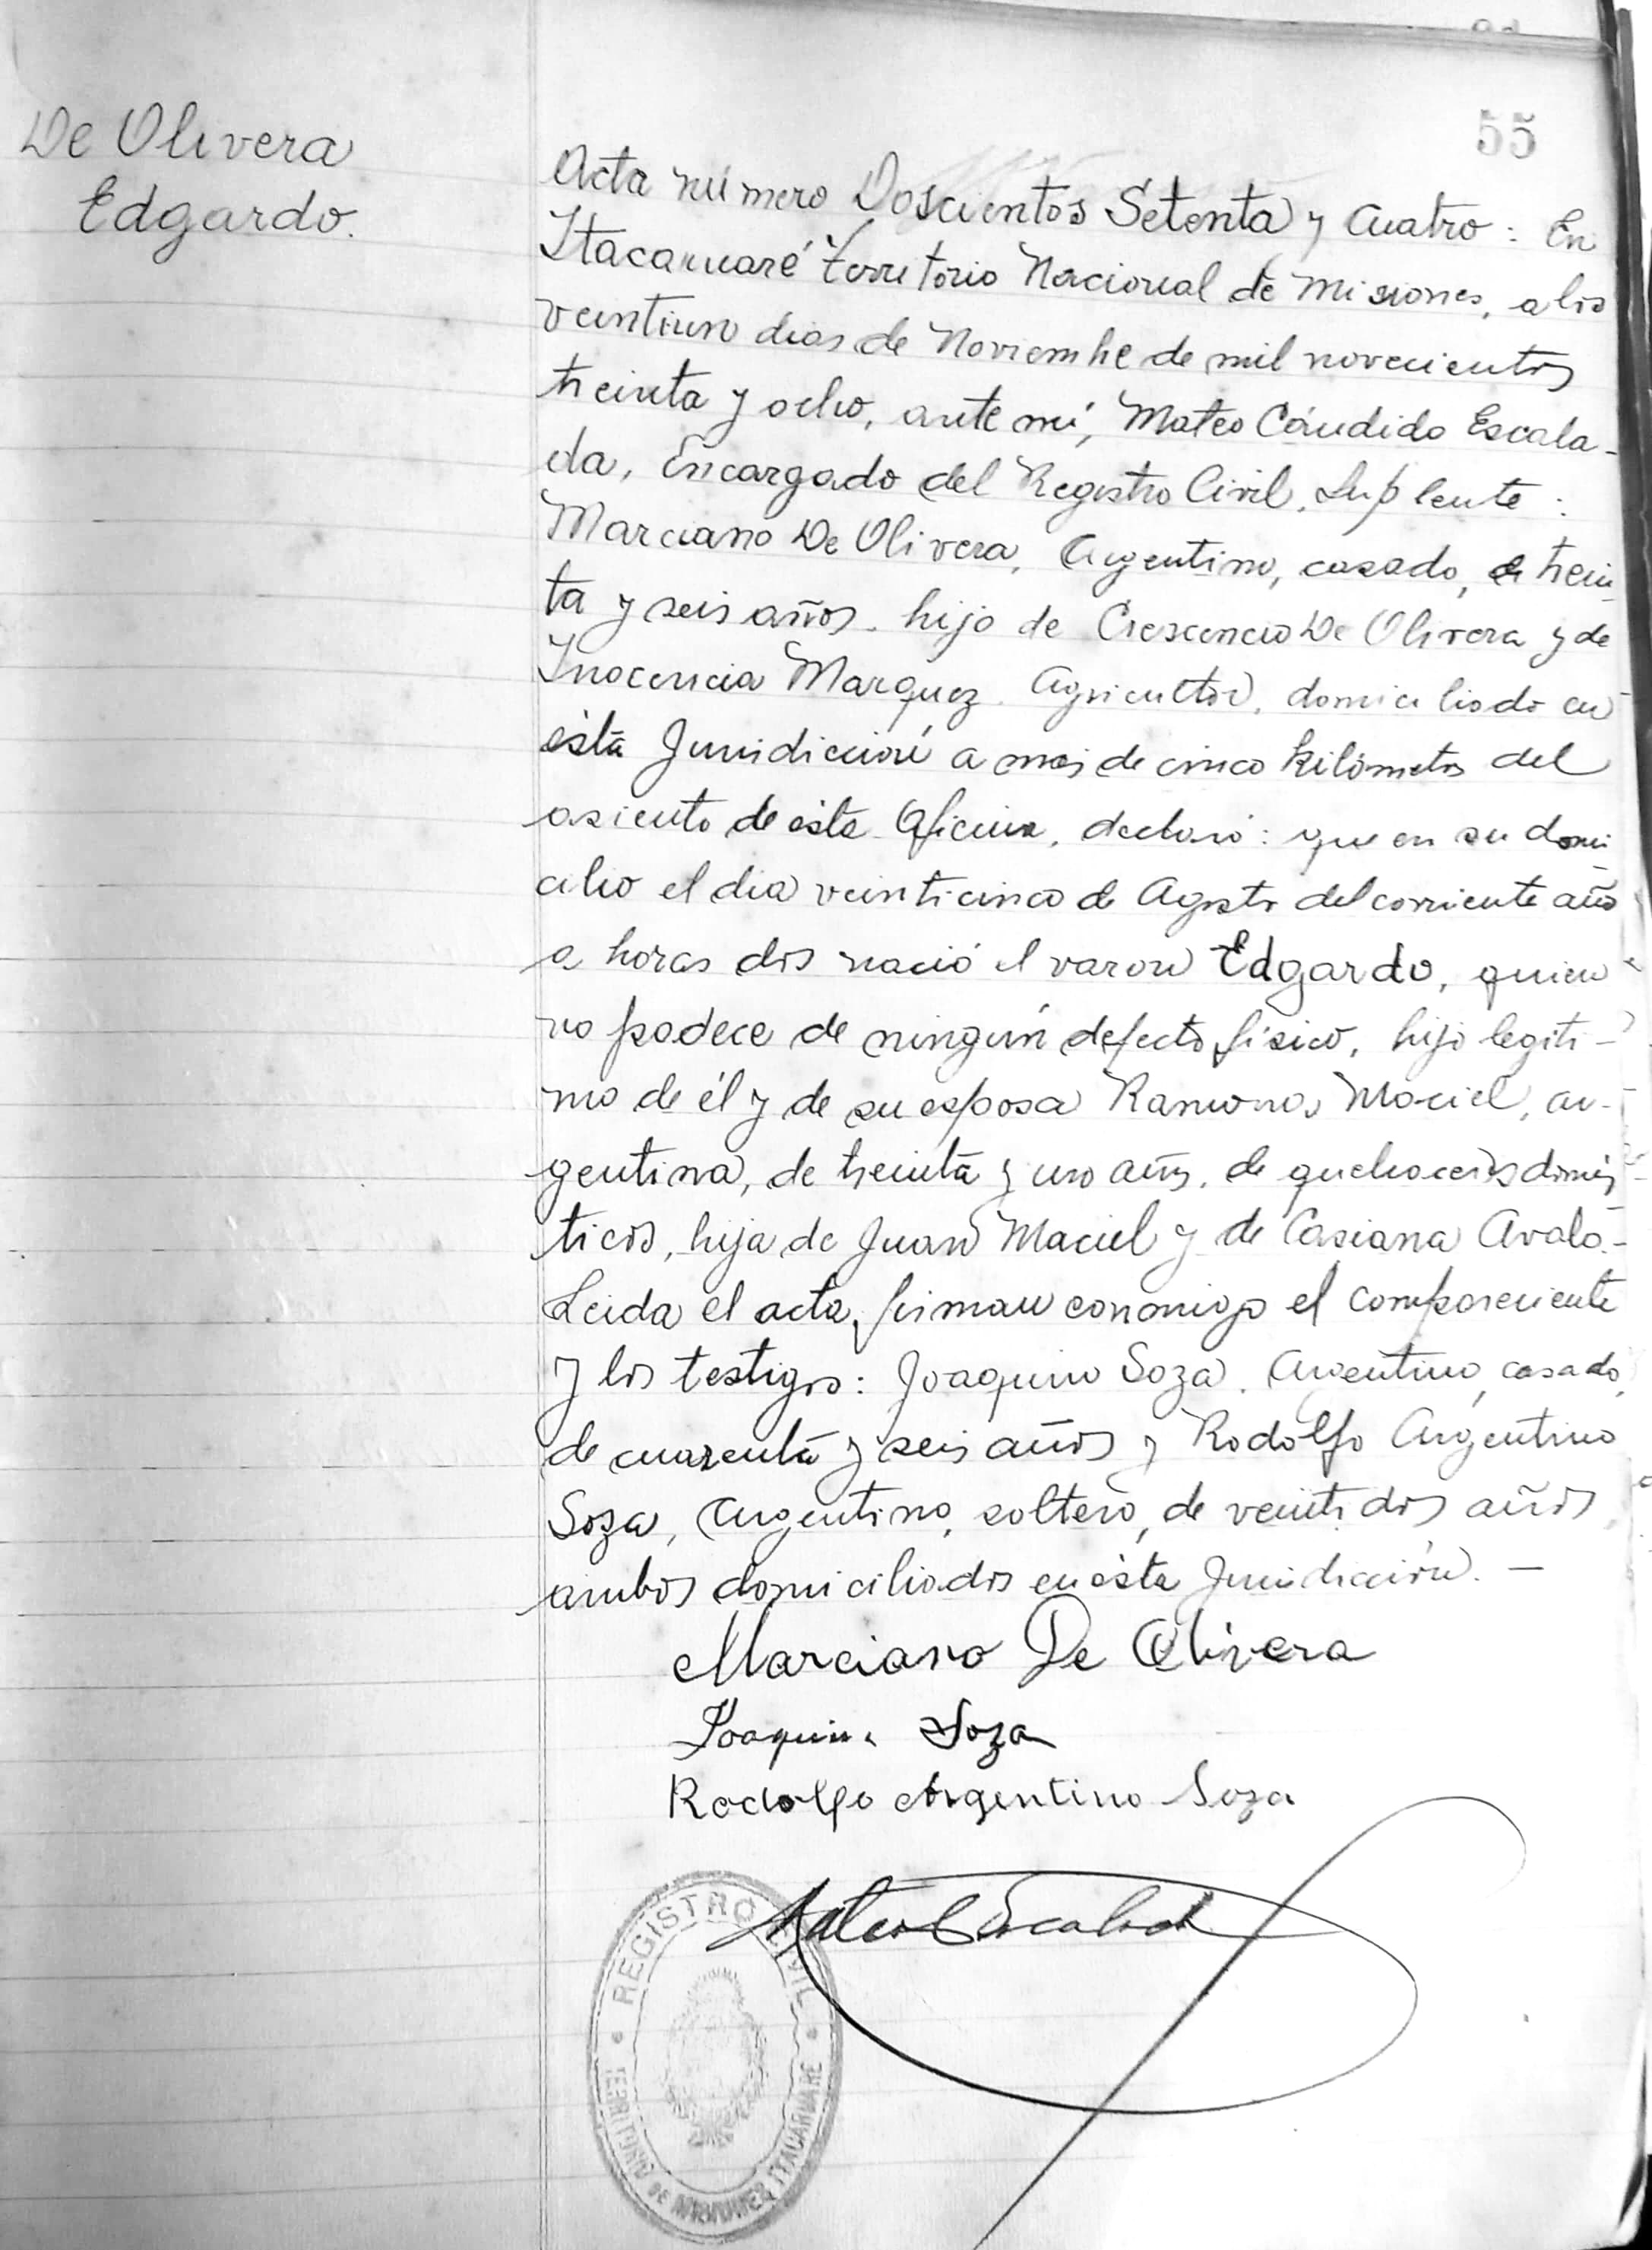 55
De Olivera
Edgardo.
Acta número Doscientos Setenta y Cuatro: En
Itacaruaré Territorio Nacional de Misiones, a los
veintiun dias de Noviembre de mil novecientos
treinta y ocho, ante mí, Mateo Cándido Escala-
da, Encargado del Registro Civil, Suplente:
Marciano De Olivera, Argentino, casado, de trein-
ta y seis años, hijo de Crescencio De Olivera y de
Inocencia Marquez. Agricultor, domiciliado en
ésta Jurisdicción a mas de cinco kilómetros del
asiento de ésta Oficina, declaró: que en su domi-
cilio el dia veinticinco de Agosto del corriente año
a horas dos nació el varon Edgardo, quien
no padece de ningún defecto físico, hijo legiti-
mo de él y de su esposa Ramona Maciel, ar-
gentina, de treinta y uno años, de quehaceres domés-
ticos, hija de Juan Maciel y de Casiana Avalo.-
Leida el acta, firman conmigo el compareciente
y los testigos: Joaquin Soza, Argentino, casado,
de cuarenta y seis años y Rodolfo Argentino
Soza, Argentino, soltero, de veintidos años,
ambos domiciliados en ésta Jurisdicción.—
Marciano De Olivera
Joaquin Soza
Rodolfo Argentino Soza
Mateo C Escalada
REGISTRO CIVIL
TERRITORIO DE MISIONES ITACARUARE